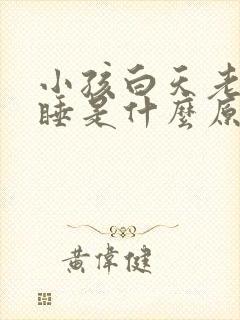 小孩白天老
睡是什麼原
黃偉健